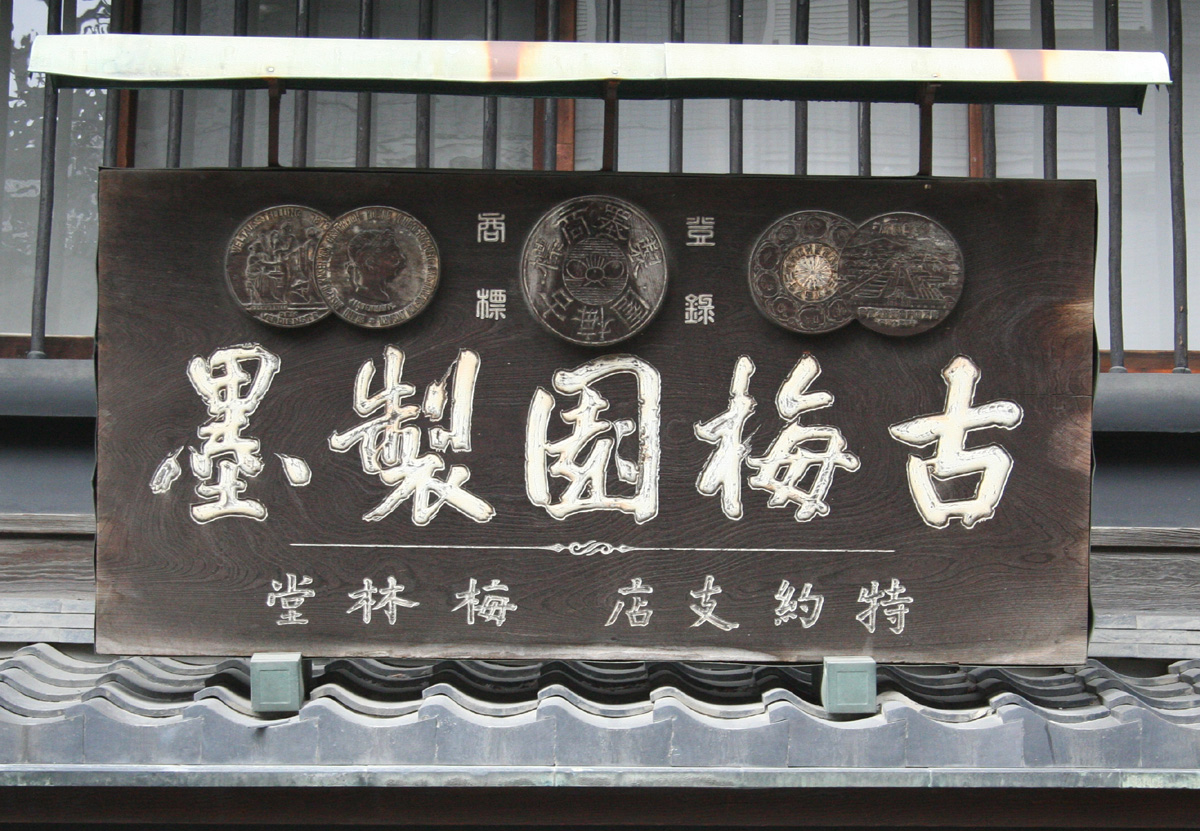 登錄
商標
古梅園製墨
特約支店 梅林堂